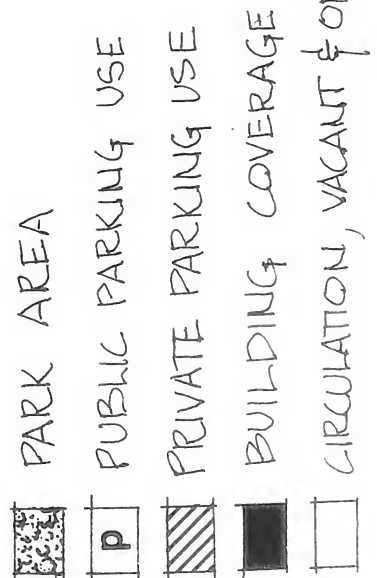 PARK AREA
p PUBLIC PARKING USE
PRIVATE PARKING USE
BUILDING COVERAGE
CIRCULATION, VACANT &